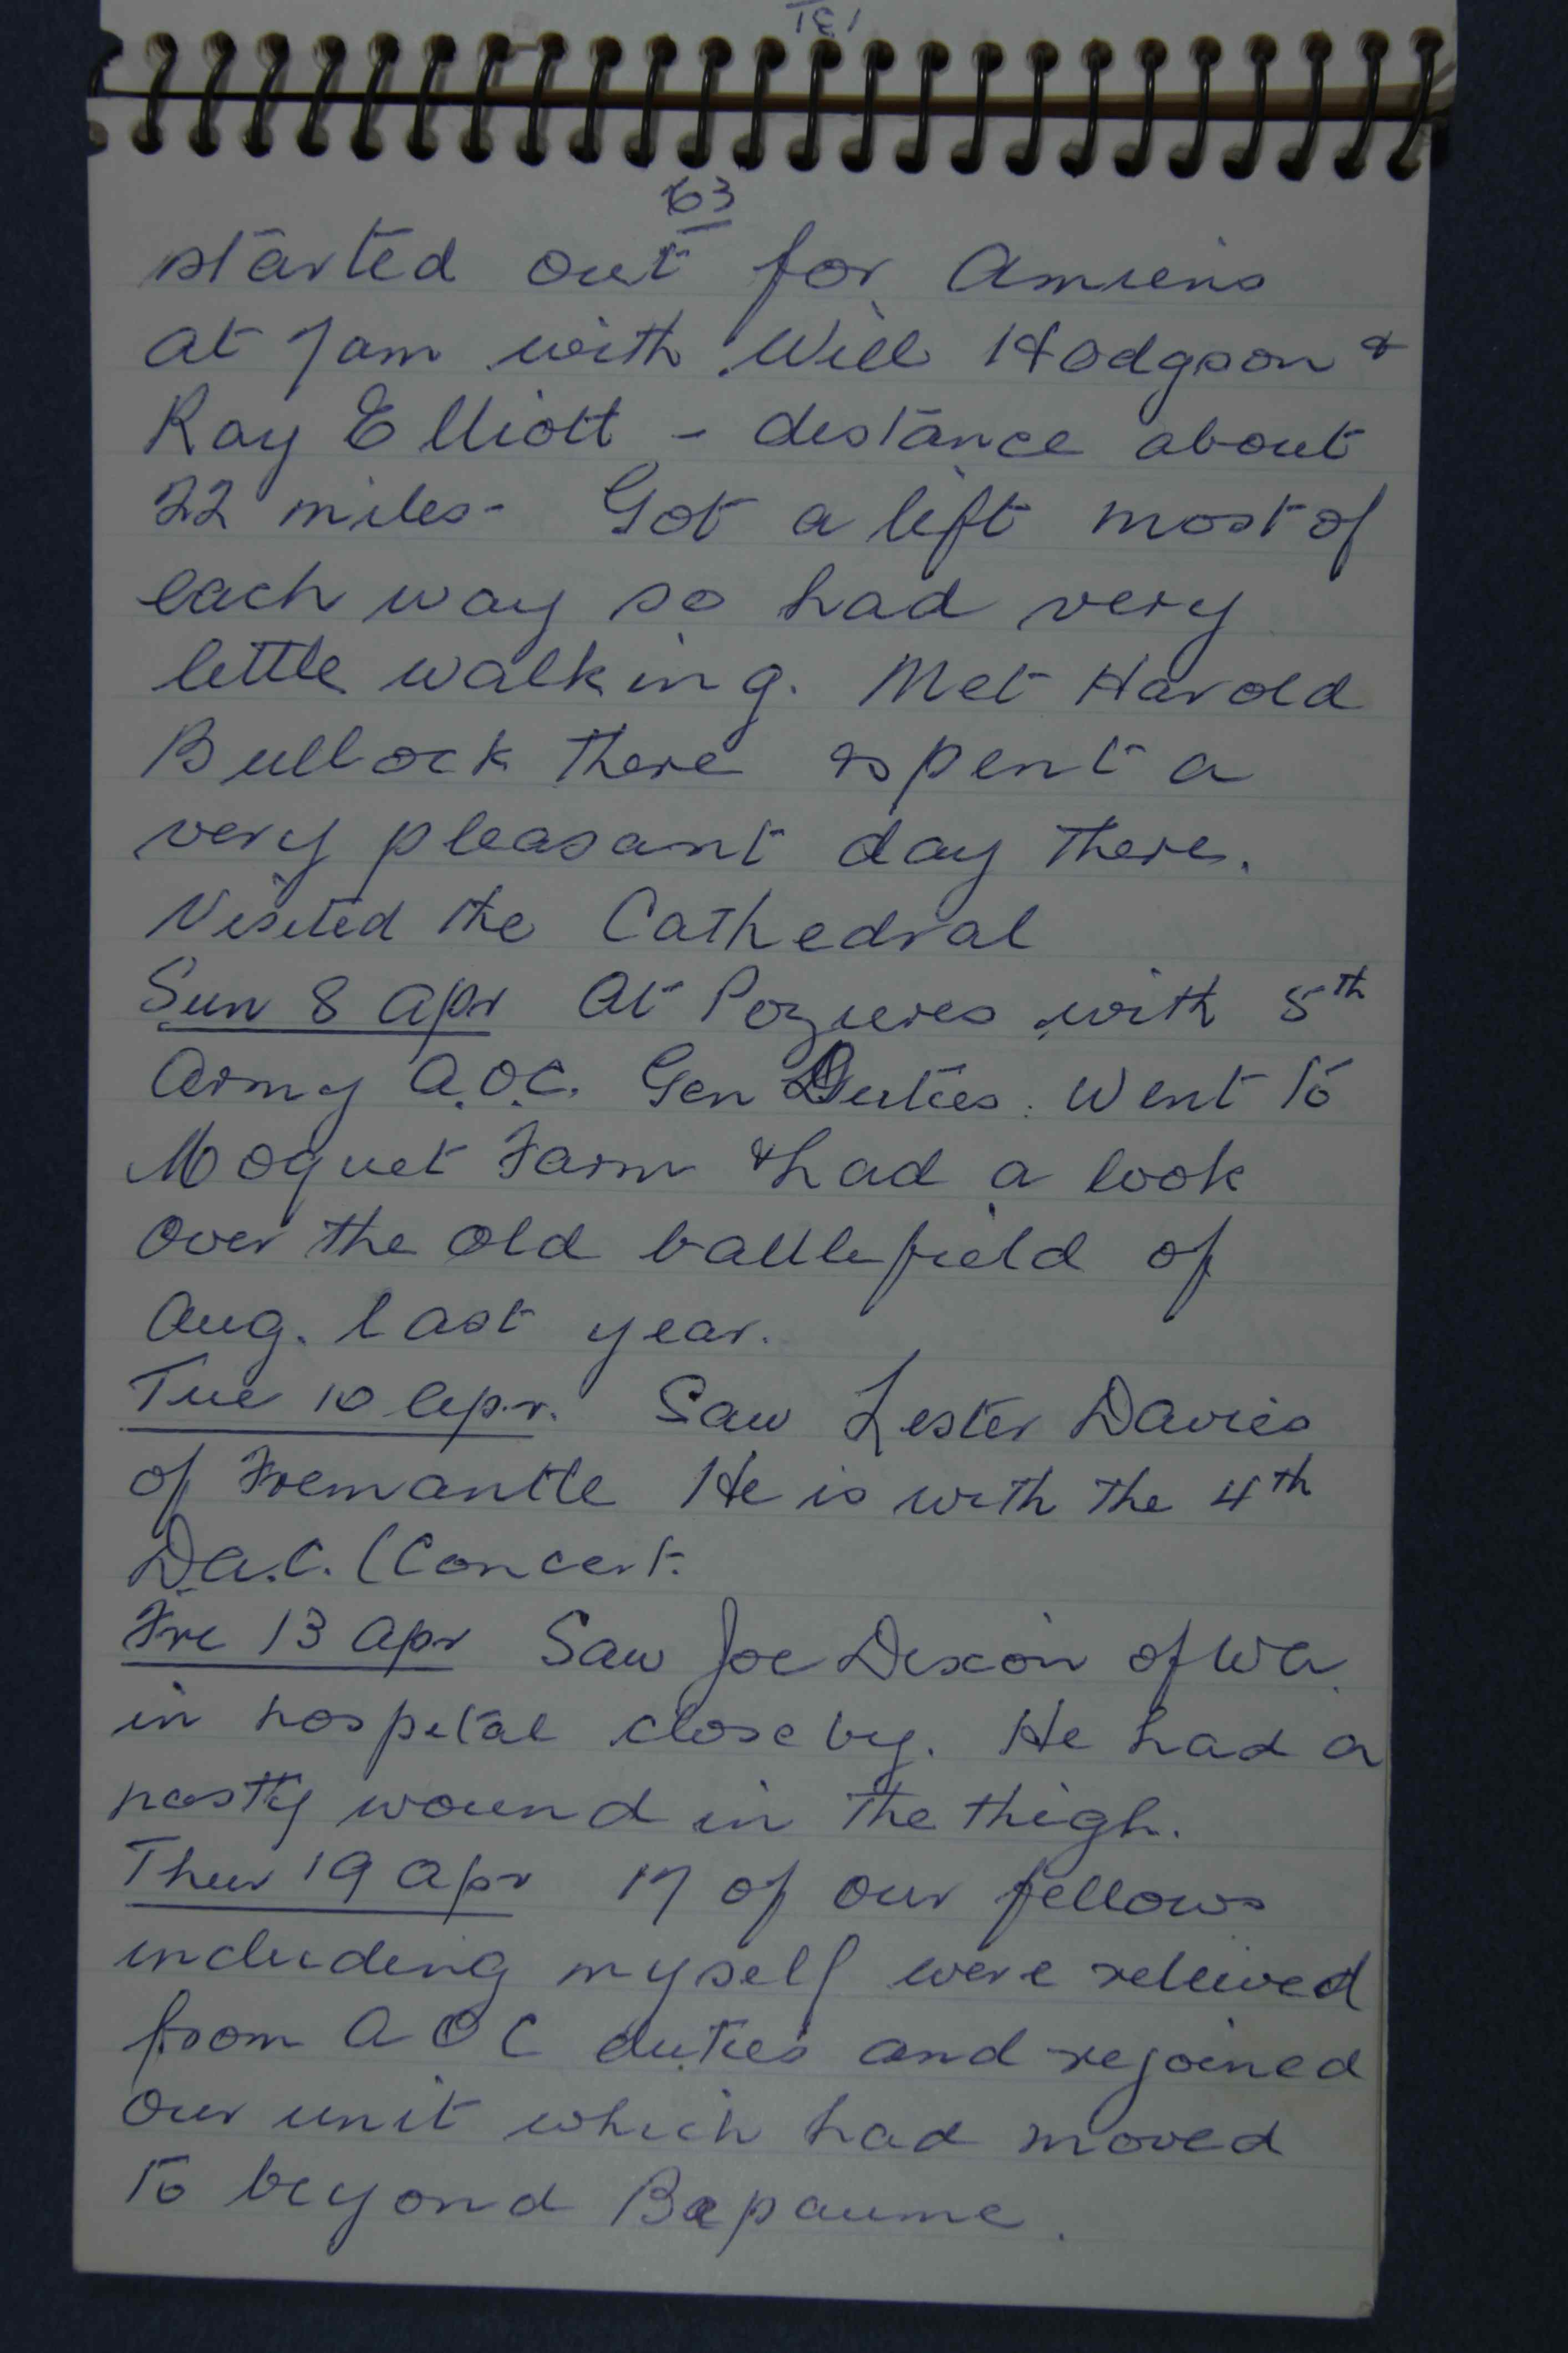 131
63
started out for Amiens
at 7am with Will Hodgson &
Ray Elliott - distance about
22 miles - Got a lift most of
each way so had very
little walking. Met Harold
Bullock there & spent a
very pleasant day there.
Visited the Cathedral
Sun 8 Apr At Pozieres with 5th
Army A.O.C. Gen Duties. Went to
Moquet Farm & had a look
over the old battlefield of
Aug. last year.
Tue 10 Apr. Saw Lester Davies
of Fremantle He is with the 4th
D.A.C. (Concert.
Fri 13 Apr Saw Joe Dixon of WA
in hospital close by. He had a
nasty wound in the thigh.
Thur 19 Apr 17 of our fellows
including myself were relieved
from A O C duties and rejoined
our unit which had moved
to beyond Bapaume.